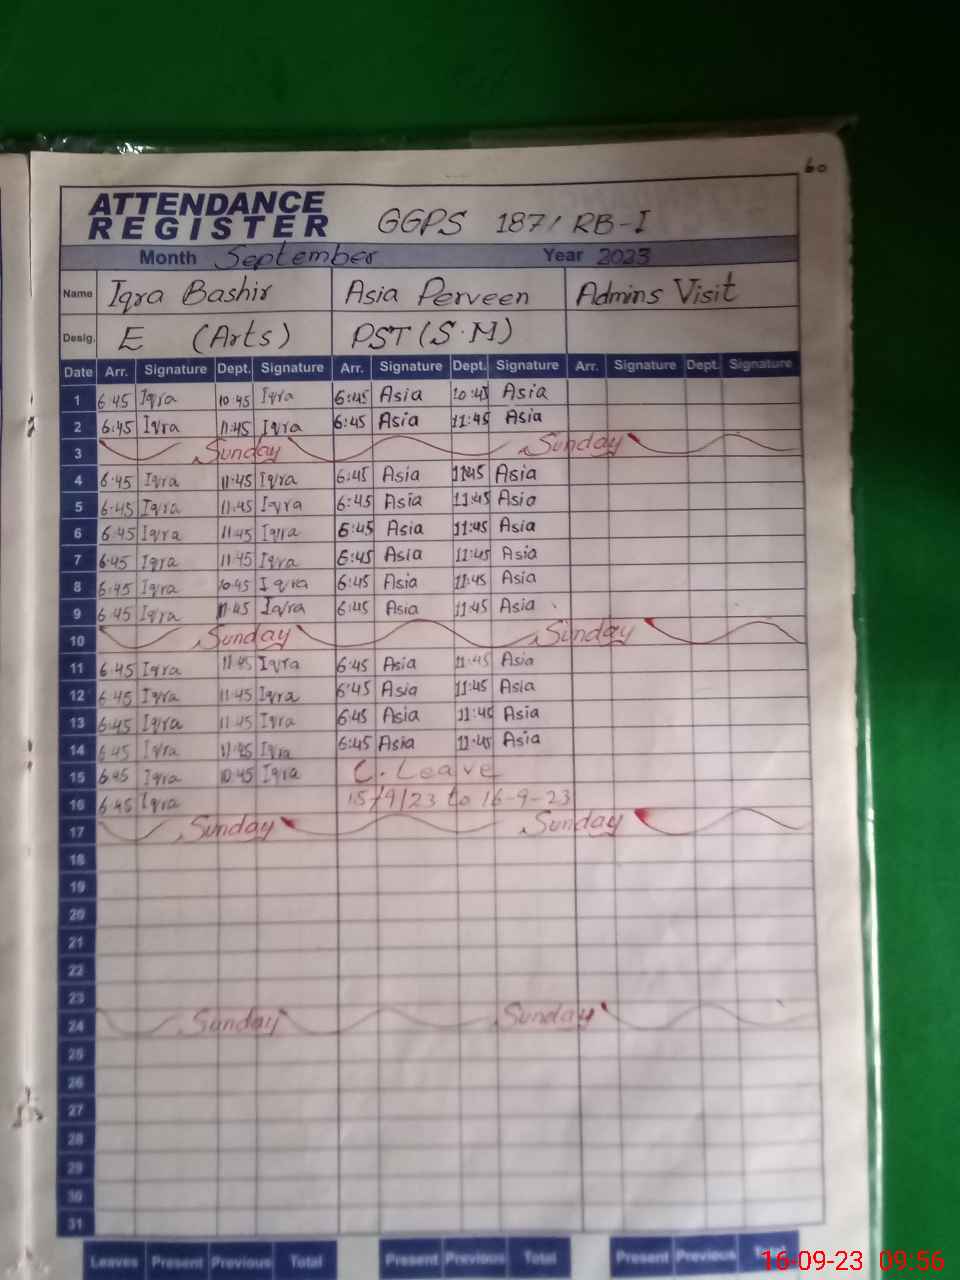 60
ATTENDANCE REGISTER GGPS 187/RB-I
Month September Year 2023
Name Iqra Bashir Asia Perveen Admins Visit
Desig. E (Arts) PST (S.M)
Date Arr. Signature Dept. Signature Arr. Signature Dept. Signature Arr. Signature Dept. Signature
1 6:45 Iqra 10:45 Iqra 6:45 Asia 10:45 Asia
2 6:45 Iqra 11:45 Iqra 6:45 Asia 11:45 Asia
3 Sunday Sunday
4 6:45 Iqra 11:45 Iqra 6:45 Asia 11:45 Asia
5 6:45 Iqra 11:45 Iqra 6:45 Asia 11:45 Asia
6 6:45 Iqra 11:45 Iqra 6:45 Asia 11:45 Asia
7 6:45 Iqra 11:45 Iqra 6:45 Asia 11:45 Asia
8 6:45 Iqra 10:45 Iqra 6:45 Asia 11:45 Asia
9 6:45 Iqra 11:45 Iqra 6:45 Asia 11:45 Asia
10 Sunday Sunday
11 6:45 Iqra 11:45 Iqra 6:45 Asia 11:45 Asia
12 6:45 Iqra 11:45 Iqra 6:45 Asia 11:45 Asia
13 6:45 Iqra 11:45 Iqra 6:45 Asia 11:45 Asia
14 6:45 Iqra 11:45 Iqra 6:45 Asia 11:45 Asia
15 6:45 Iqra 10:45 Iqra C. Leave
16 6:45 Iqra 15/9/23 to 16-9-23
17 Sunday Sunday
18
19
20
21
22
23
24 Sunday Sunday
25
26
27
28
29
30
31
Leaves Present Previous Total Present Previous Total Present Previous Total
16-09-23 09:56